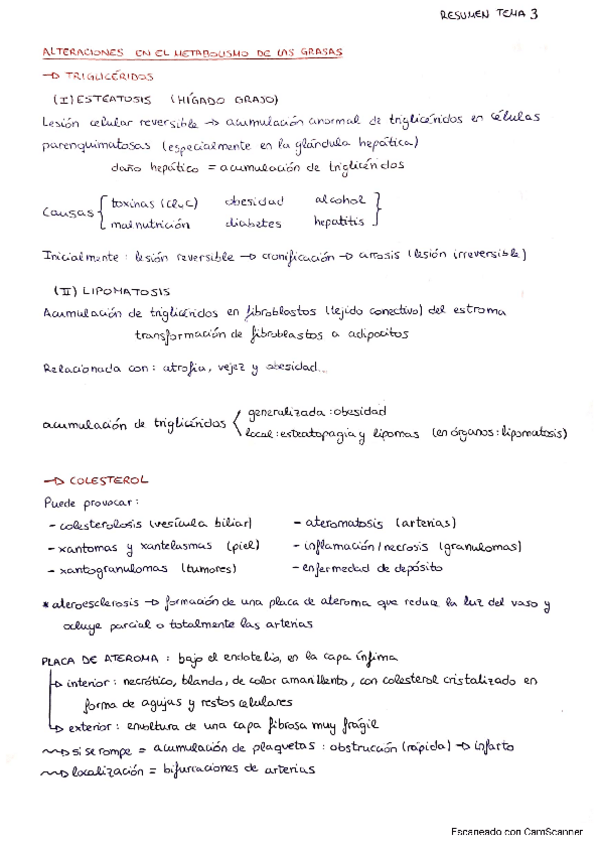 RESUMEN TEMA 3
ALTERACIONES EN EL METABOLISMO DE LAS GRASAS
→ TRIGLICÉRIDOS
(I) ESTEATOSIS (HÍGADO GRASO)
Lesión celular reversible → acumulación anormal de triglicéridos en células
parenquimatosas (especialmente en la glándula hepática)
daño hepático = acumulación de triglicéridos
Causas { toxinas (Cl4C) obesidad alcohol }
malnutrición diabetes hepatitis
Inicialmente: lesión reversible → cronificación → cirrosis (lesión irreversible)
(II) LIPOMATOSIS
Acumulación de triglicéridos en fibroblastos (tejido conectivo) del estroma
transformación de fibroblastos a adipocitos
Relacionada con: atrofia, vejez y obesidad...
acumulación de triglicéridos < generalizada: obesidad
local: esteatopagia y lipomas (en órganos: lipomatosis)
→ COLESTEROL
Puede provocar:
- colesterolosis (vesícula biliar) - ateromatosis (arterias)
- xantomas y xantelasmas (piel) - inflamación/necrosis (granulomas)
- xantogranulomas (tumores) - enfermedad de depósito
* ateroesclerosis → formación de una placa de ateroma que reduce la luz del vaso y
ocluye parcial o totalmente las arterias
PLACA DE ATEROMA: bajo el endotelio, en la capa ínfima
→ interior: necrótico, blando, de color amarillento, con colesterol cristalizado en
forma de agujas y restos celulares
→ exterior: envoltura de una capa fibrosa muy frágil
→ si se rompe = acumulación de plaquetas: obstrucción (rápida) → infarto
→ localización = bifurcaciones de arterias
Escaneado con CamScanner